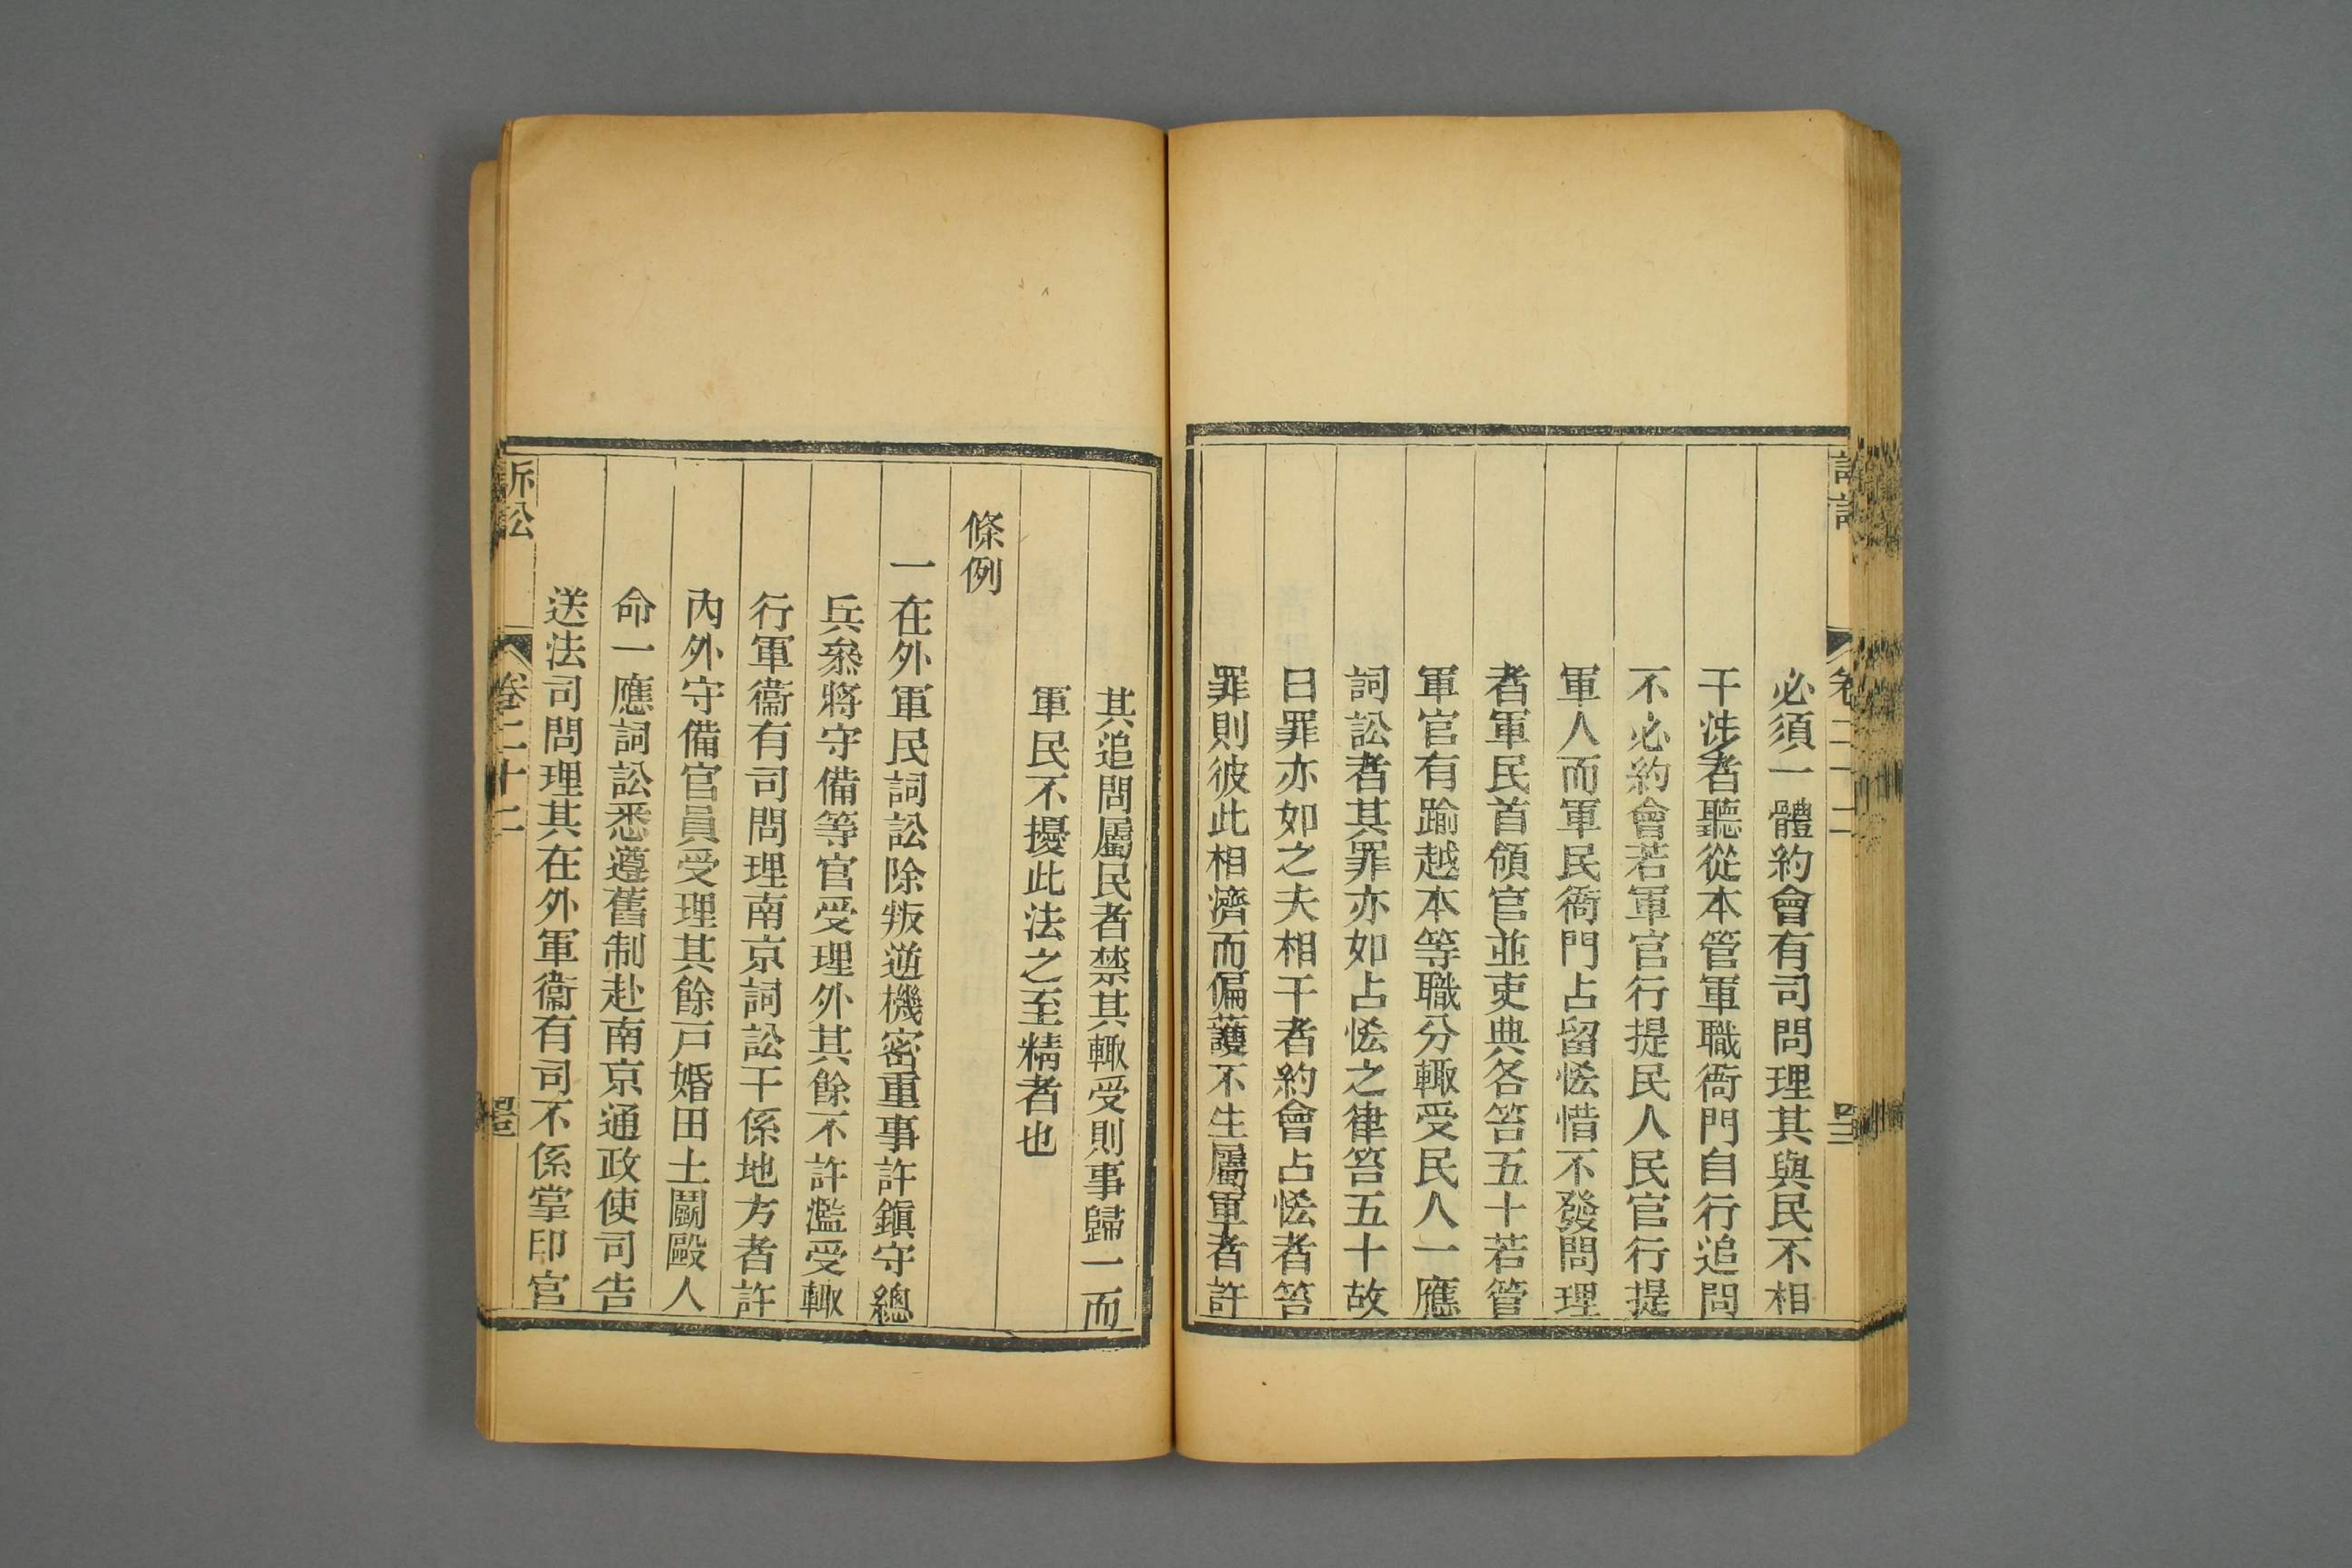 必須一體約會有司問理其與民不相
干涉者聽從本管軍職衙門自行追問
不必約會若軍官行提民人民官行提
軍人而軍民衙門占留恡惜不發問理
者軍民首領官並吏典各笞五十若管
軍官有踰越本等職分輙受民人一應
詞訟者其罪亦如占恡之律笞五十故
曰罪亦如之夫相干者約會占恡者笞
罪則彼此相濟而偏護不生屬軍者許
其追問屬民者禁其輙受則事歸一而
軍民不擾此法之至精者也
條例
一在外軍民詞訟除叛逆機密重事許鎭守總
兵叅將守備等官受理外其餘不許濫受輙
行軍衞有司問理南京詞訟干係地方者許
內外守備官員受理其餘戸婚田土鬭毆人
命一應詞訟悉遵舊制赴南京通政使司告
送法司問理其在外軍衞有司不係掌印官
訴訟 卷二十二